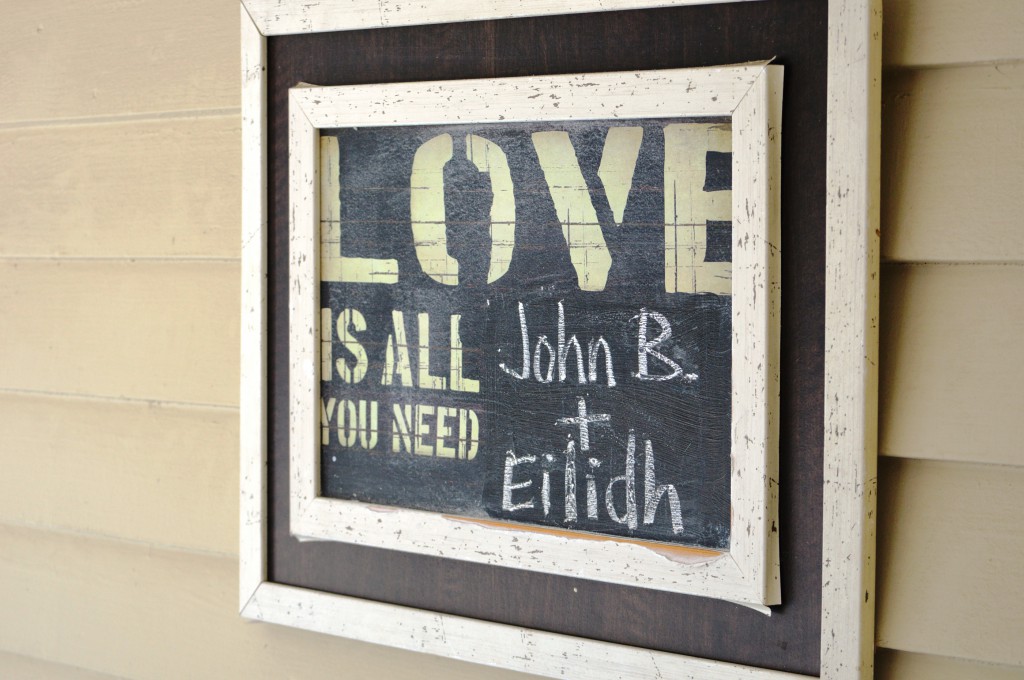 LOVE
IS ALL
YOU NEED
John B.
+
Eilidh